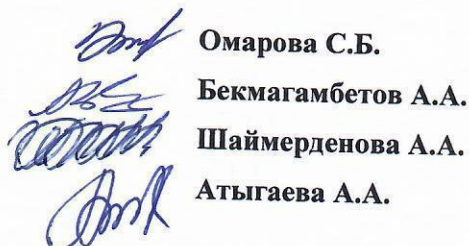 Омарова С.Б.
Бекмагамбетов А.А.
Шаймерденова А.А.
Атыгаева А.А.